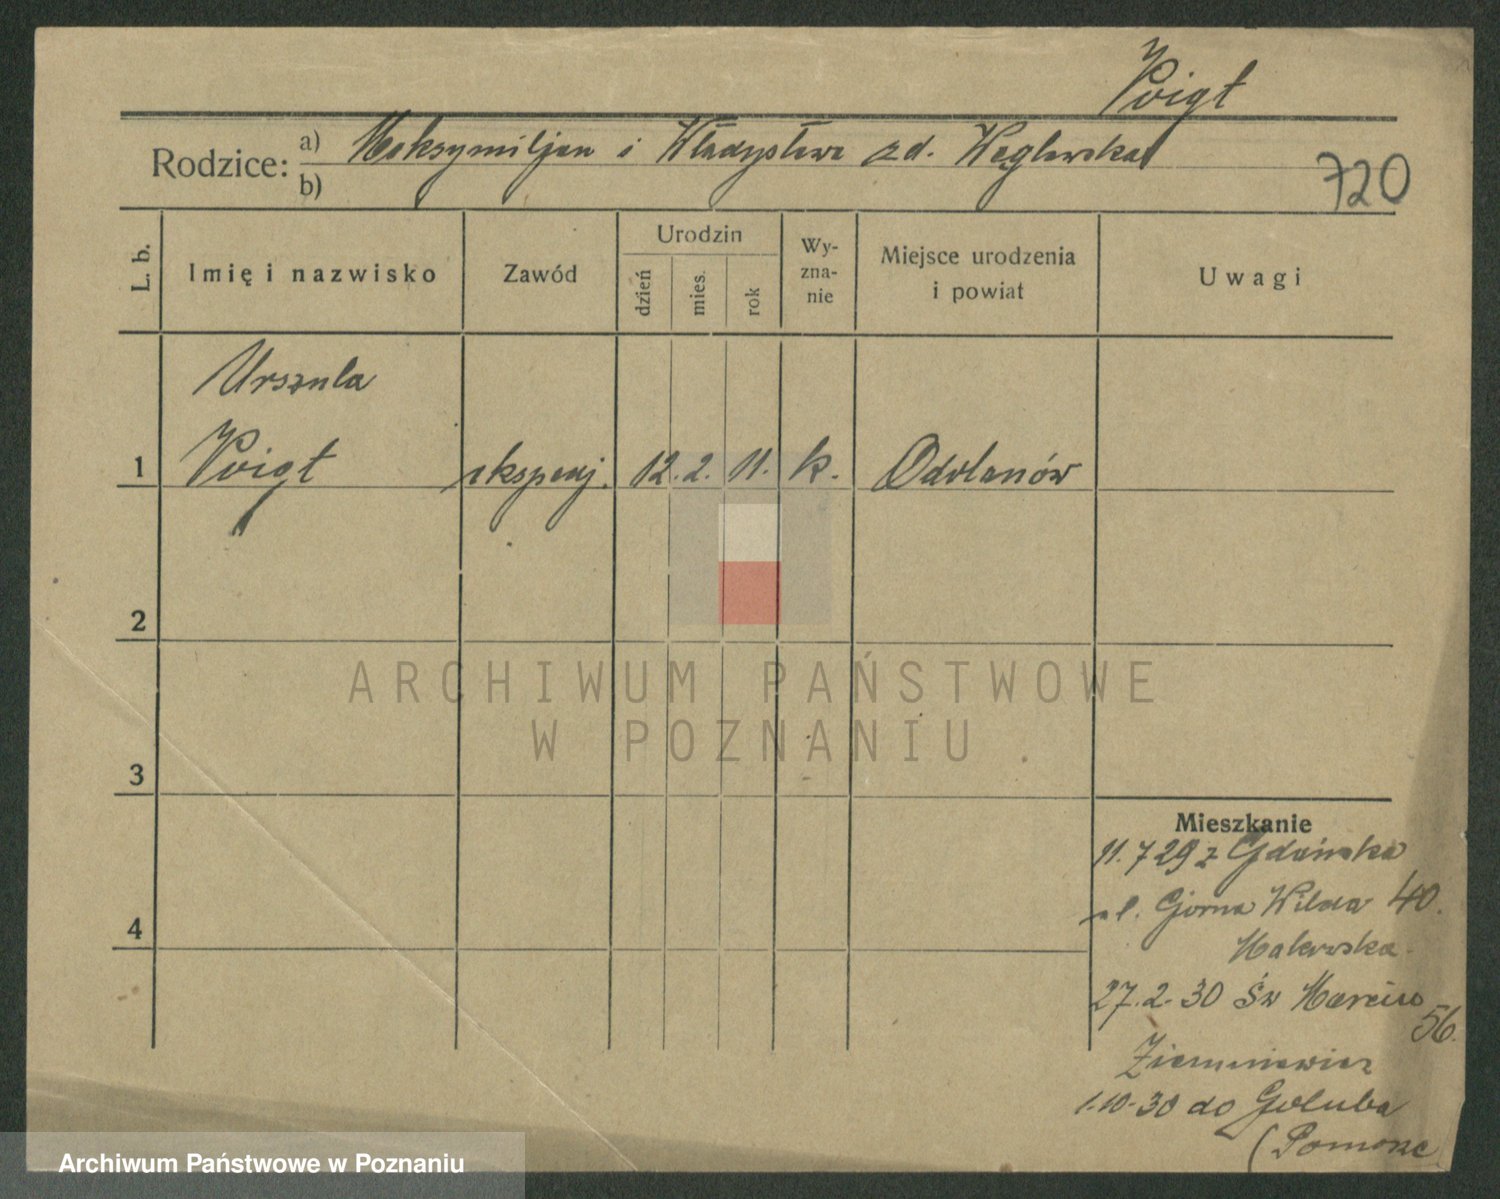 Voigt
Rodzice: a) Maksymiljan i Władysława zd. Węglewska
b)
720
L. b.
Imię i nazwisko
Zawód
Urodzin
dzień
mies.
rok
Wy-
zna-
nie
Miejsce urodzenia
i powiat
Uwagi
Urszula
1 Voigt ekspedj. 12. 2. 11. k. Odolanów
2
ARCHIWUM PAŃSTWOWE
W POZNANIU
3
Mieszkanie
11.7 29 z Gdańska
ul. Górna Wilda 40.
4
Malewska
27.2.30 Św Marcin
56.
Ziemniewicz
1.10.30 do Goluba
(Pomorze
Archiwum Państwowe w Poznaniu